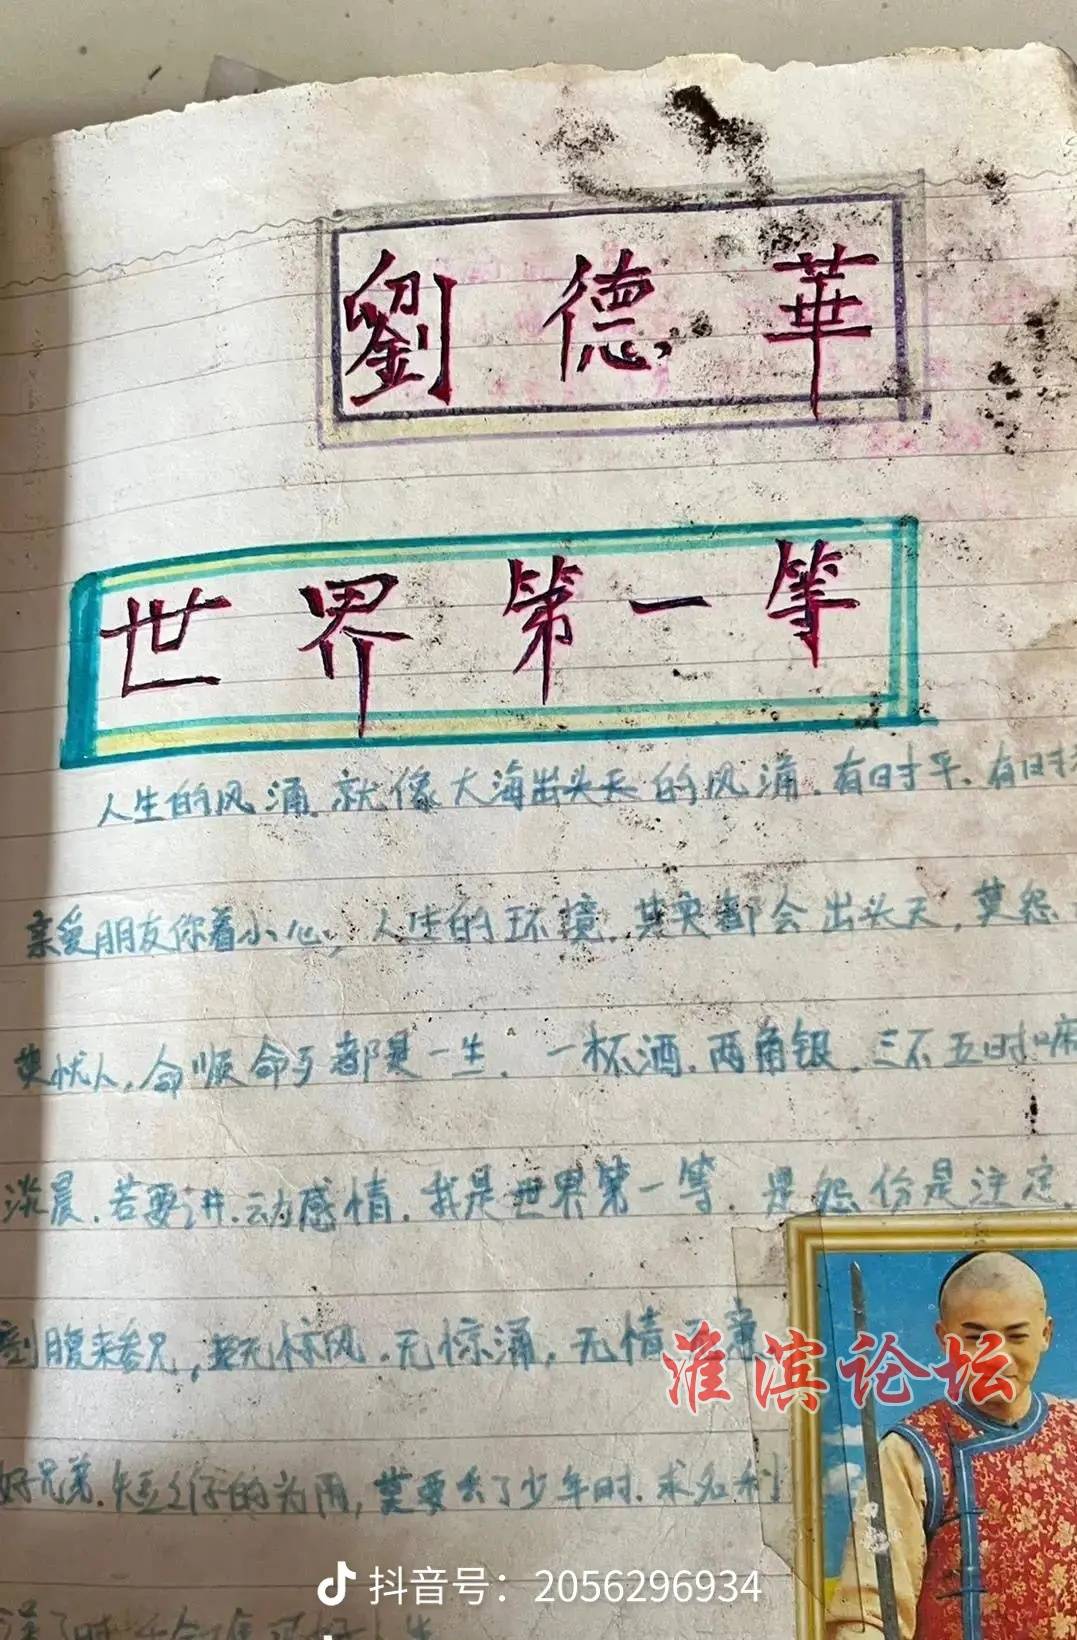 劉德華
世界第一等
人生的风涌.就像大海出头天的风涌.有时平.有时
亲爱朋友你着小心,人生的环境.其实都会出头天,莫怨
莫忧人,命顺命歹都是一生.一杯酒.两角银.三不五时嘛
淡晨.若要讲.动感情.我是世界第一等.是怨份是注定.
无惊风.无惊涌,无情
好兄弟.你的为阮,莫要去了少年时.求名利
淮滨论坛
抖音号：2056296934